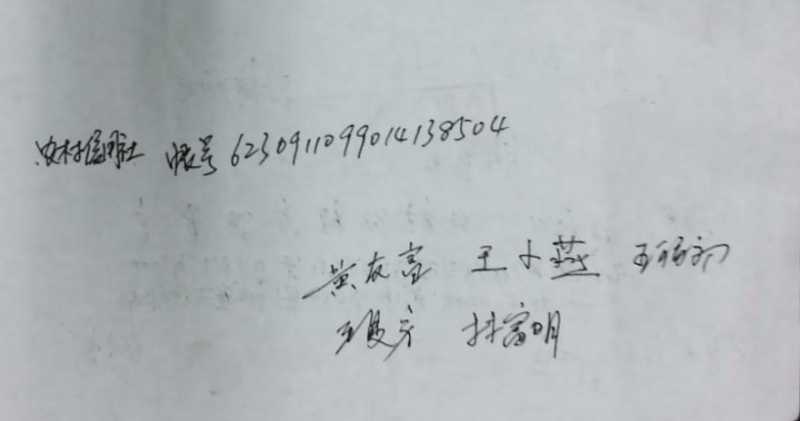 农村信用社 帐号 6230911099014138504
黄友富 王小燕
林富明